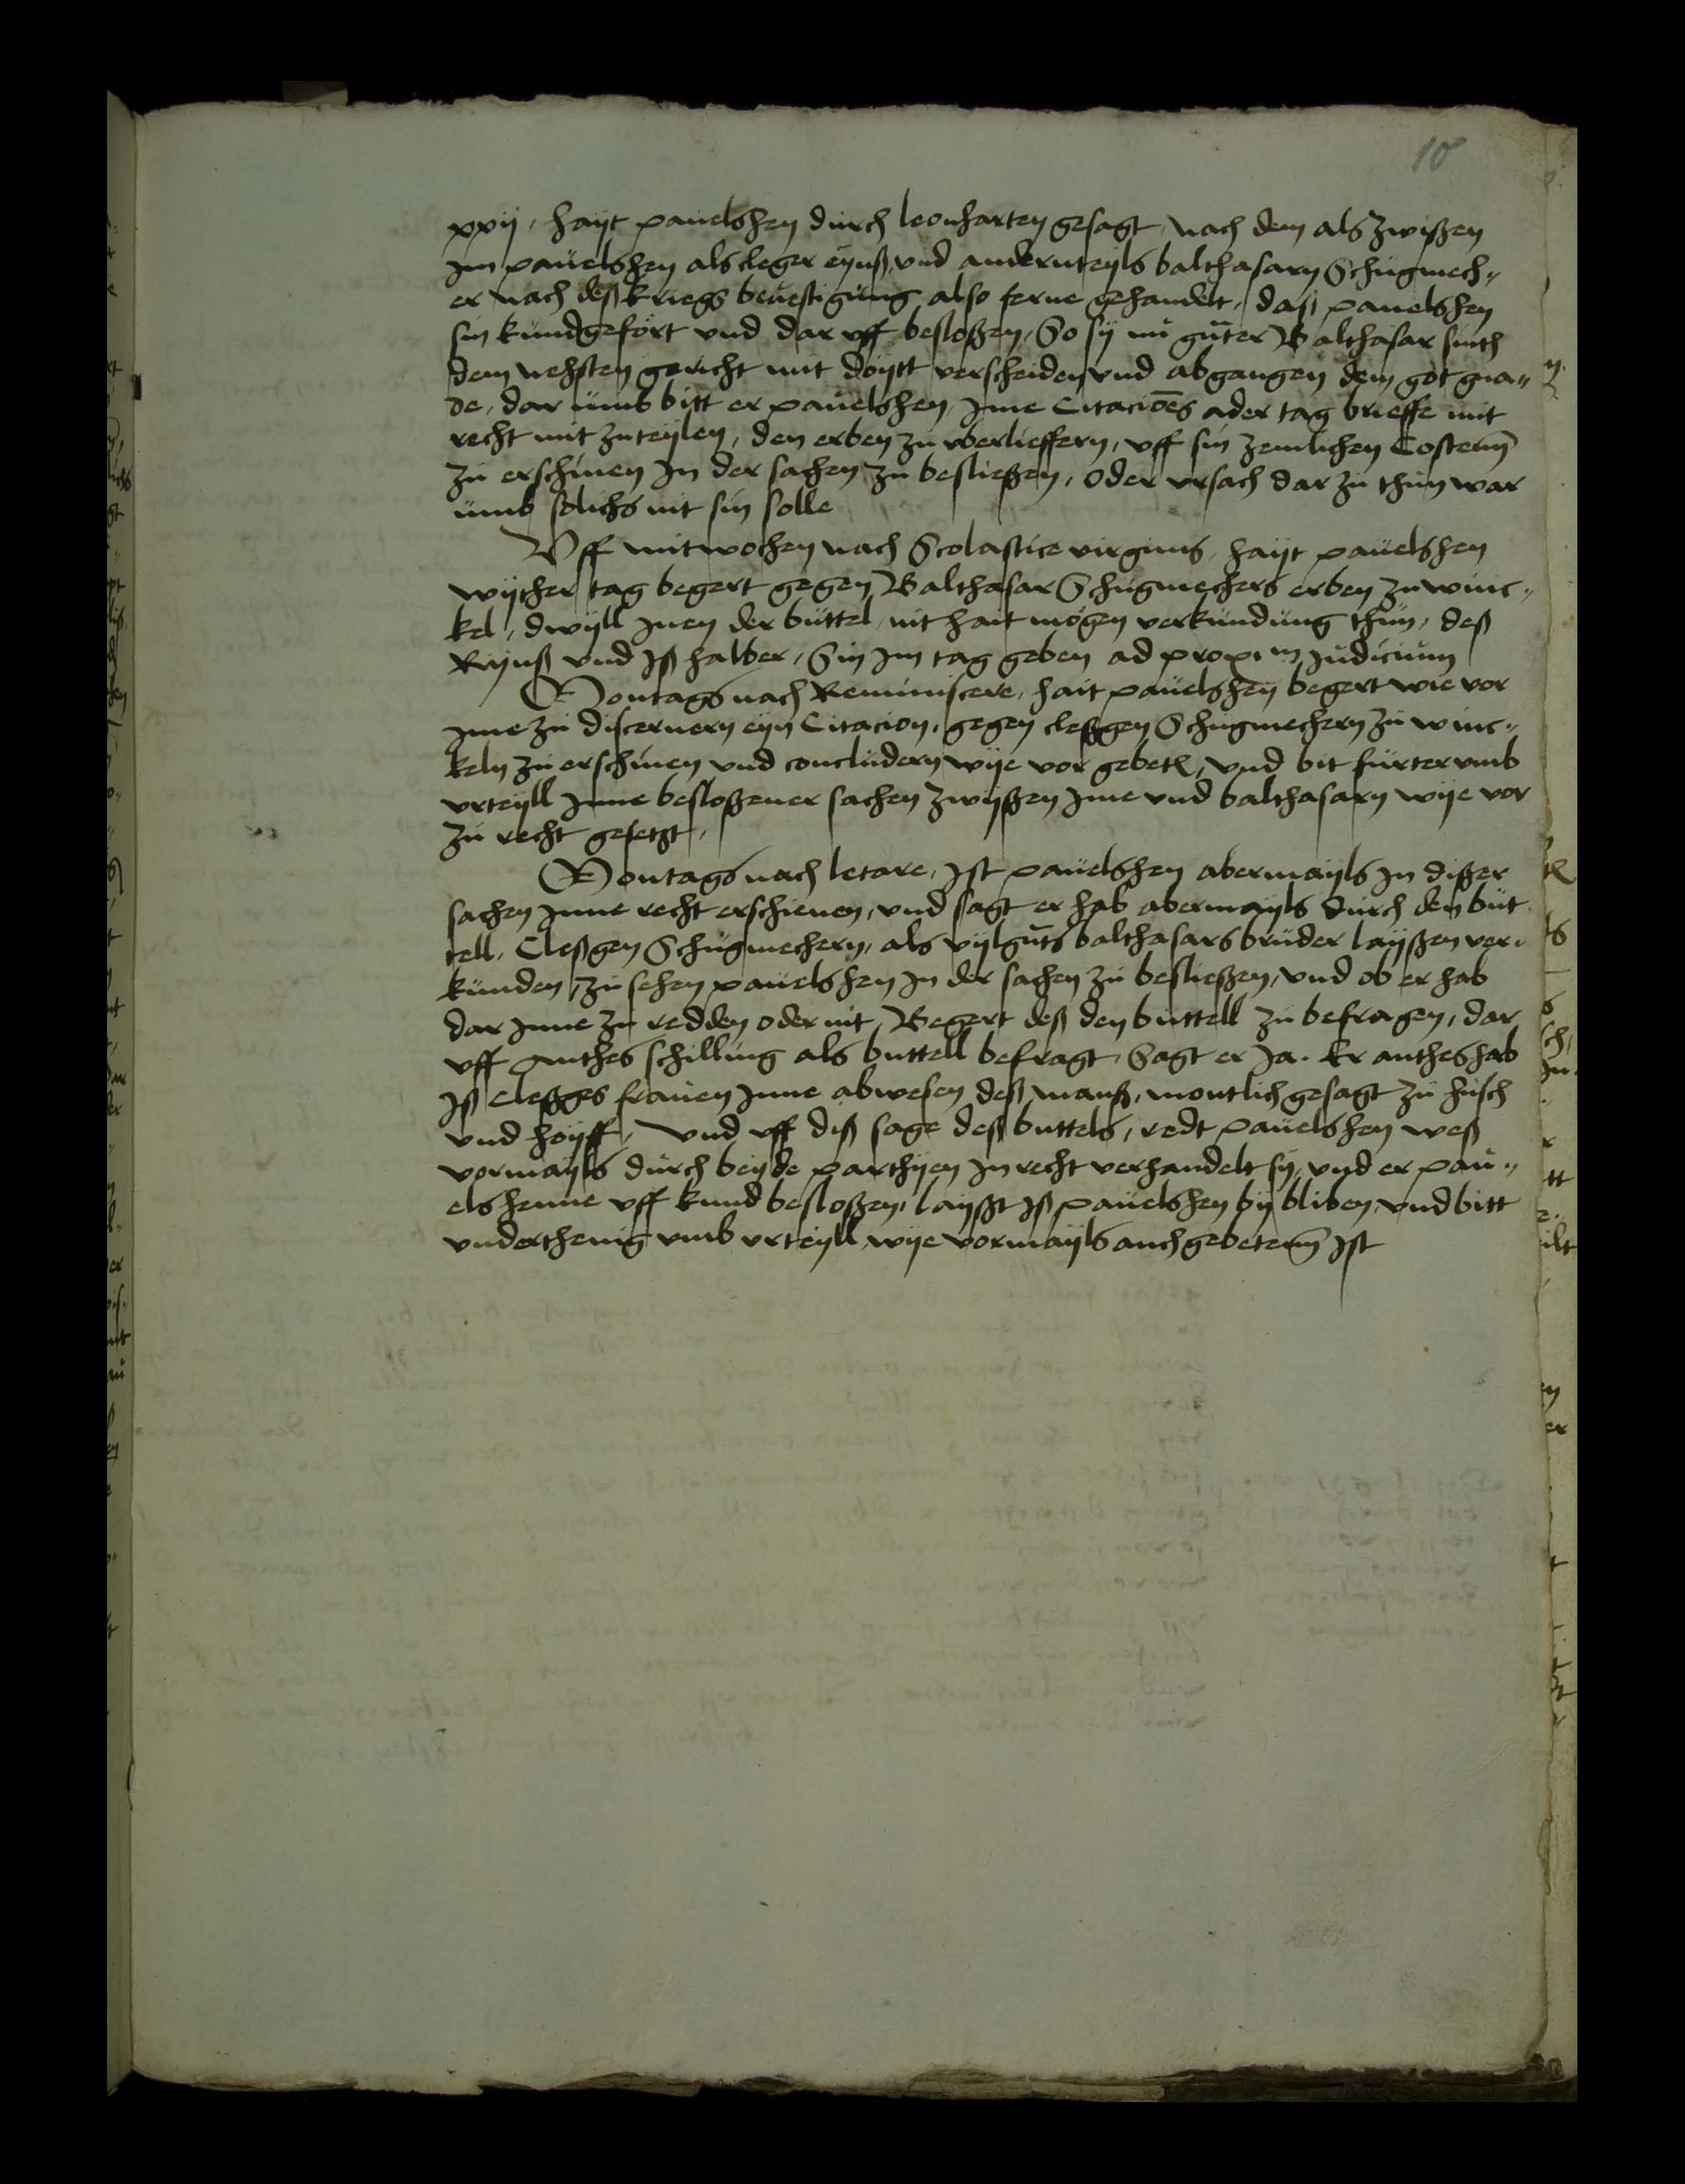 10
xxij, hayt pauelshen durch leonharten gesagt, nach dem als zwißen
im pauelshen als cleger eynß vnd anderntyls balthasarn Schugmech„
er nach deß kriegs beuestigung also ferne gehandelt, daß pauelshen
sin kundgefort vnd dar vff besloßen, So sy nu guter Balthasar sinth
dem nehsten gericht mit doytt verscheiden vnd abgangen dem got gna„
de, dar umb bitt er pauelshen, Jme Citaciōes ader tag brieffe mit
recht mit zuteylen, den erben zu vberlieffern, vff sin zemlichen Costenn
zu erschinen In der sachen zu besließen, oder vrsach dar zu thun war
umb solichs nit sin solle
Vff mitwochen nach Scolastice virginis, hayt pauelshen
wyther tag begert gegen Balthasar Schugmechers erben zu winc„
kel, dwyll Jnen der büttel nit hait mogen verkundung thun, deß
Rynß vnd Jß halber, Sin jm tag geben ad proximum Judicium
Montags nach Reminiscere, hait pauelshen begert wie vor
Jme zu discernern eyn Citacion, gegen cleßgen Schugmechern zu winc„
keln zu erschinen vnd concludern wye vor gebeth, vnd bit furter vmb
vrteyll Jnne besloßener sachen zwyßen Jme vnd balthasarn wye vor
zu recht gesetzt,
Montags nach letare, Jst pauelshen abermayls Jn dißer
sachen Jnne recht erschienen, vnd sagt er hab abermayls durch den büt
tell, Cleßgen Schugmechern, als balthasars bruder layßen ver„
kunden, zu sehen pauelshen Jn der sachen zu besließen, vnd ob er hab
dar Jnne zu redden oder nit, Begert deß den buttell zu befragen, dar
vff anthes schilling als buttell befragt, Sagt er Ja. Er anthes hab
Jß cleßges frauen Jnne abwesen deß manß, montlich gesagt zu husch
vnd hoyff, Vnd vff diß sage deß buttels, redt pauelshen weß
vormayls durch beyde parthyen Jn recht verhandelt sy, vnd er pau„
elshenne vff kund besloßen, layßt Jß pauelshen by bliben, vnd bitt
vnderthenig vmb vrteyll, wye vormayls auch gebetenn Jst